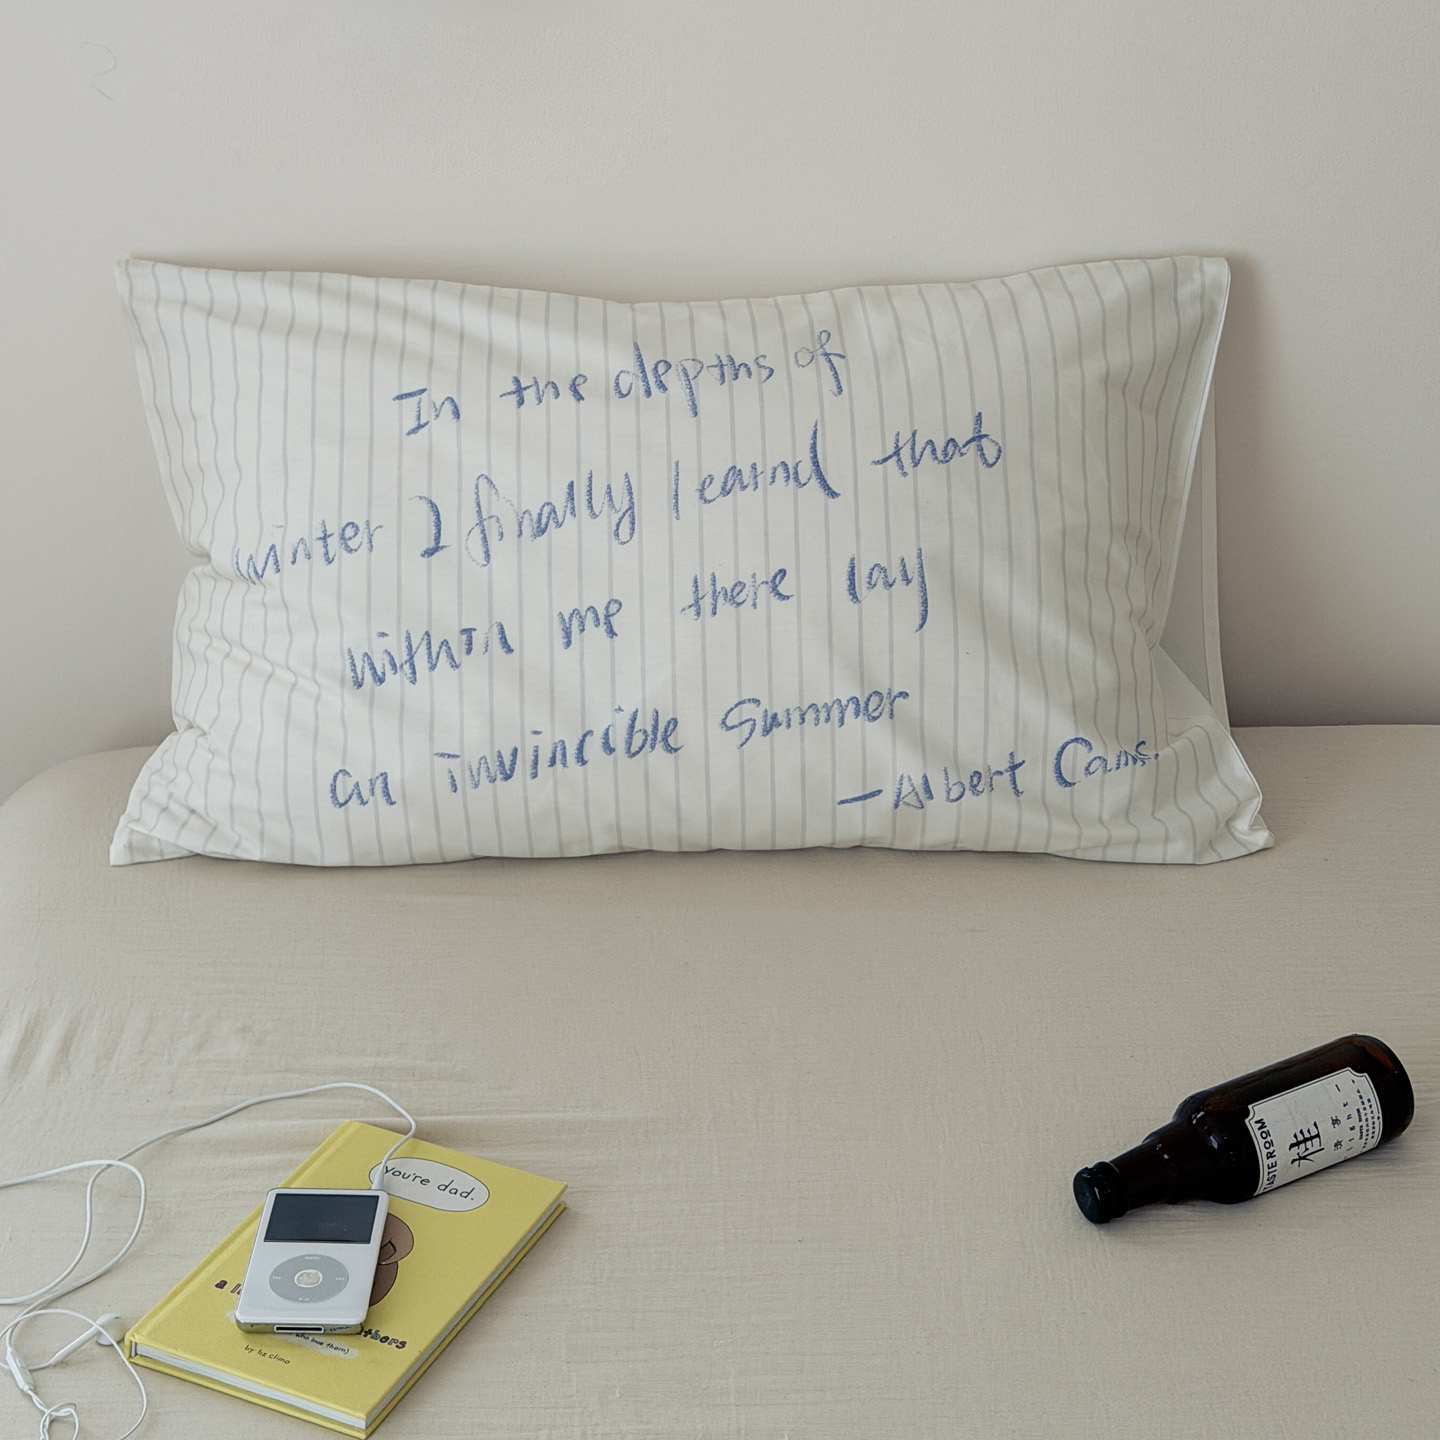 In the depths of
winter I finally learnd that
within me there lay
an invincible Summer
—Albert Cams.
you're dad.
who love them)
by liz climo
TASTEROOM
桂